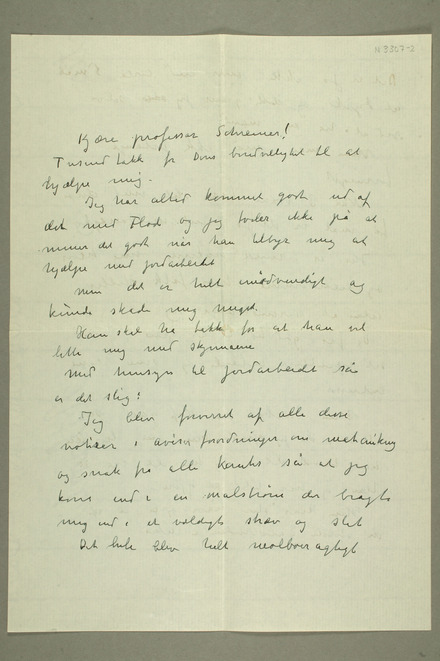 N 3327-2
Kjære professor Schreiner!
Tusind takk for Deres bredvillighet til at
hjælpe mig.
Jeg har altid kommet godt ud af
det med Flod og jeg tviler ikke på at
mener det godt når han tilbyr mig at
hjælpe med jordarbeidet
men det er helt unødvendigt og
kunde skade mig meget.
Han skal ha takk for at han vil
lette mig med skyerne
Med hensyn til jordarbeidet så
er det slig:
Jeg blev forvirret af alle disse
notiser i aviser forordninger om matauking
og snak fra alle kanter så at jeg
kom ind i en malstrøm der bragte
mig ind i et vældigt stræv og slet
Det hele blev helt